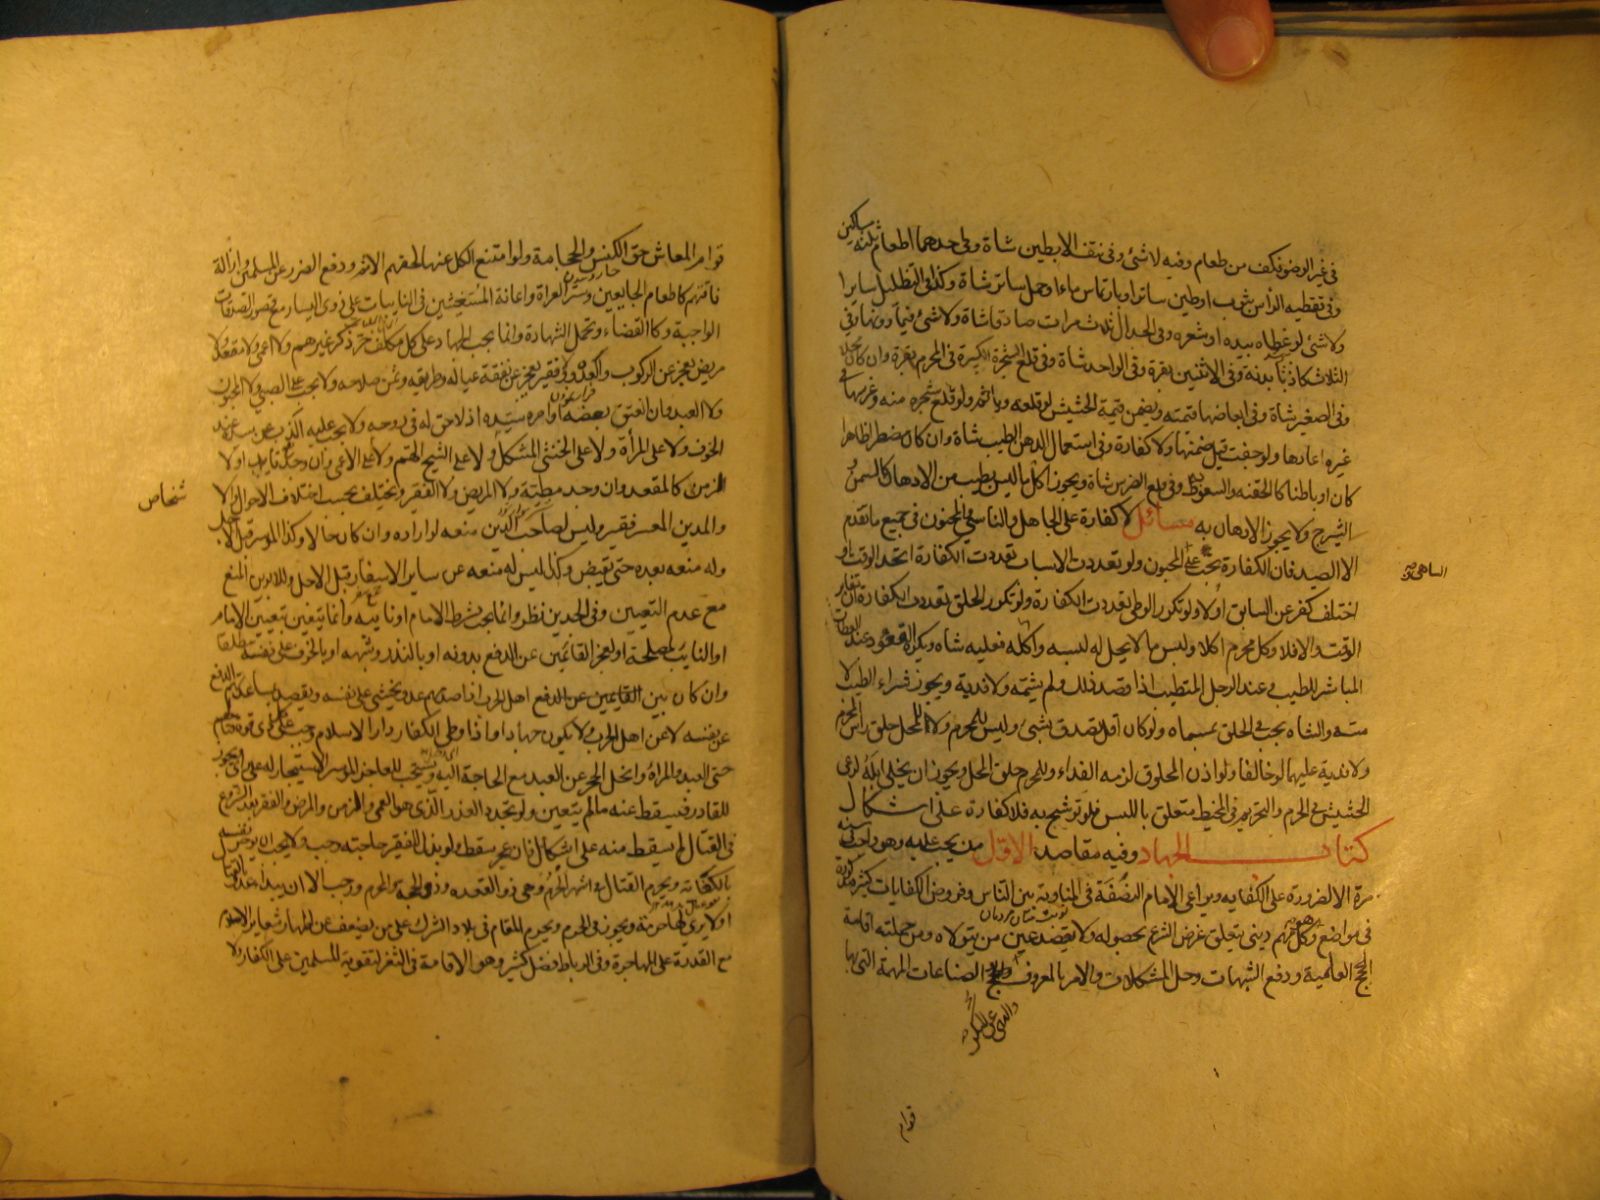 في غير الوضوء كف من طعام وفيه لا شئ وفي نتف الابطين شاة وفي احدهما اطعام ثلثة مساكين
وفي تغطية الراس بثوب او طين ساترا او بارتماس ماء او حمل ساتر شاة وكذا في التظليل سايرا
ولا شئ لو غطاه بيده او شعره وفي الجدال ثلاث مرات صادقا شاة ولا شئ فيما دونها وفي
الثلاث كاذبا بدنة وفي الاثنين بقرة وفي الواحد شاة وفي قلع الشجرة الكبيرة في المحرم بقرة وان كان محلا
وفي الصغير شاة وفي ابعاضها قيمته ويضمن قيمة الحشيش لو قلعه وياثم ولو قلع شجره منه وغرسها في
غيره اعادها ولو جفت قيل ضمنها ولا كفارة وفي استعمال الدهن الطيب شاة وان كان مضطرا ظاهرا
كان او باطنا كالحقنه والسعوط وفي قلع الضرس شاة ويجوز اكل ما ليس بطيب من الادهان كالسمن و
الشيرج ولا يجوز الادهان به مسائل لا كفارة على الجاهل والناسي والمجنون في جميع ما تقدم
الا الصيد فان الكفارة تجب على المجنون ولو تعددت الاسباب تعددت الكفارة اتحد الوقت او
اختلف كفر عن السابق اولا ولو تكرر الوطى تعددت الكفارة ولو تكرر الحلق تعددت الكفارة ان تغاير
الوقت والا فلا وكل محرم اكل او لبس ما لا يحل له لبسه واكله فعليه شاه ويكره القعود عند العطار
المباشر للطيب وعند الرجل المتطيب اذا قصد ذلك ولم يشمه ولا فدية ويجوز شراء الطيب لا
مسه والشاه يجب في الحلق بمسماه ولو كان اقل تصدق بشئ وليس للمحرم ولا للمحل حلق راس المحرم
ولا فدية عليهما لو خالفا ولو اذن المحلوق لزمه الفداء وللمحرم حلق المحل ويجوز ان يخلى ابله لرعى
الحشيش في الحرم والتحريم في المخيط متعلق باللبس فلو توشح به فلا كفارة على اشكال
كتاب الجهاد وفيه مقاصد الاول من يجب عليه وهو واجب في كل سنه
مرة الا لضرورة على الكفايه ويراعى الامام النصفة في المناوبة بين الناس وفروض الكفايات كثيرة مذكورة
في مواضع وهو كل مهم ديني يتعلق غرض الشرع بحصوله ولا يقصد عين من يتولاه ومن جملته اقامة
الحجج العلمية ودفع الشبهات وحل المشكلات والامر بالمعروف والصناعات المهمة التي بها
والنهى عن المنكر
الساهى
قوام
قوام المعاش حتى الكنس والحجامة ولو امتنع الكل عنها لحقهم الاثم ودفع الضرر عن المسلمين وازالة
فاقتهم كاطعام الجايعين وستر العراة واعانة المستغيثين في النايبات على ذوى اليسار مع قصور الصدقات
الواجبة وكالقضاء وتحمل الشهادة وانما يجب الجهاد على كل مكلف حر ذكر غير هم ولا اعمى ولا مقعد ولا
مريض يعجز عن الركوب والعدو وفقير يعجز عن نفقة عياله وطريقه وثمن سلاحه ولا يجب على الصبى ولا المجنون
ولا العبد وان انعتق بعضه او امره سيده اذ لا حق له في روحه ولا يجب عليه الذب عن سيده عند
الخوف ولا على المراة ولا على الخنثى المشكل ولا على الشيخ الهم ولا على الاعمى وان وجد قايدا ولا
الزمن كالمقعد وان وجد مطية ولا المريض ولا الفقير ويختلف بحسب اختلاف الاحوال ولا
والمدين المعسر فقير وليس لصاحب الدين منعه لو اراده وان كان حالا وكذا الموسر قبل الاجل
وله منعه بعده حتى يقبض وكذا ليس له منعه عن ساير الاسفار قبل الاجل وللابوين المنع
مع عدم التعيين وفي الجدين نظر وانما يجب بشرط الامام او نايبه وانما يتعين بتعيين الامام
او النايب لمصلحة او لعجز القائمين عن الدفع بدونه او بالنذر وشبهه او بالخوف على نفسه مطلقا
وان كان بين القايمين عن الدفع اهل الحرب اذا صدمهم عدو يخشى على نفسه ويقصد بمساعدتهم الدفع
عن نفسه لا عن اهل الحرب ولا يكون جهادا ماذا وطى الكفار دار الاسلام وجب على كل ذى قوة قتالهم
حتى العبد والمراة وانحل الحجر عن العبد مع الحاجة اليه ويستحب للعاجز الموسر الاستيجار له على راى ويجوز
للقادر فيسقط عنه ما لم يتعين ولو تجدد العذر الذى هو العمى والزمن والمرض والفقر بعد الشروع
في القتال لم يسقط منه على اشكال فان عجز سقط ولو بذل للفقير حاجته وجب ولا يجب لو
بالكفاية ويحرم القتال في اشهر الحرم وهى ذو القعده وذو الحجة والمحرم ورجب الا ان يبدا عدو القتال
او لا يرى لها حرمة ويجوز في الحرم ويحرم المقام في بلاد الشرك على من يضعف عن اظهار شعاير الاسلام
مع القدرة على المهاجرة وفي الرباط فضل كثير وهو الاقامة في الثغر لتقوية المسلمين على الكفار ولا